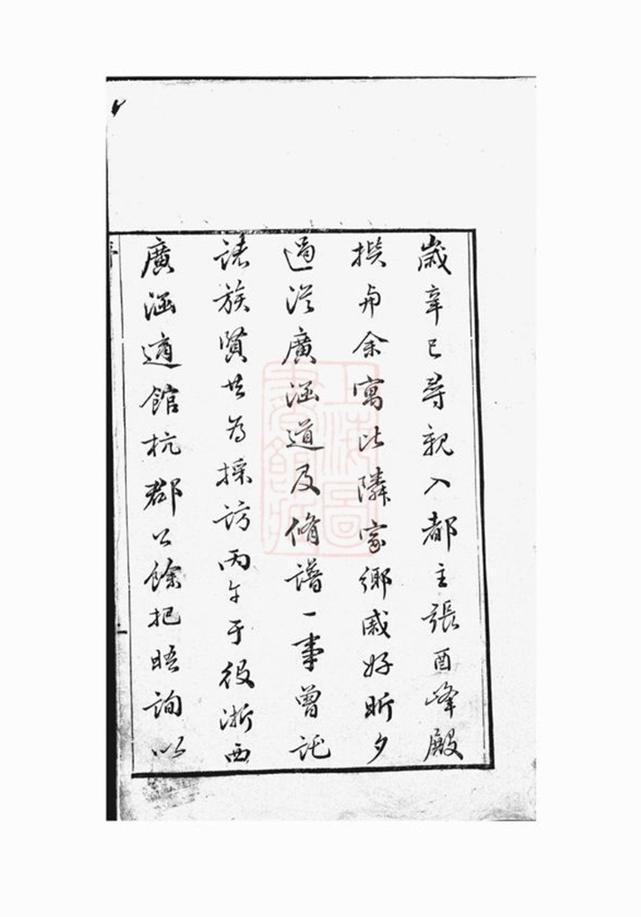 歲辛巳尋親入都主張酉峰殿
撰與余寓比隣家鄉戚好昕夕
過從廣涵道及脩譜一事曾託
諸族賢共為採訪丙午于役浙西
廣涵適館杭郡公餘把晤詢以
上海圖書館藏